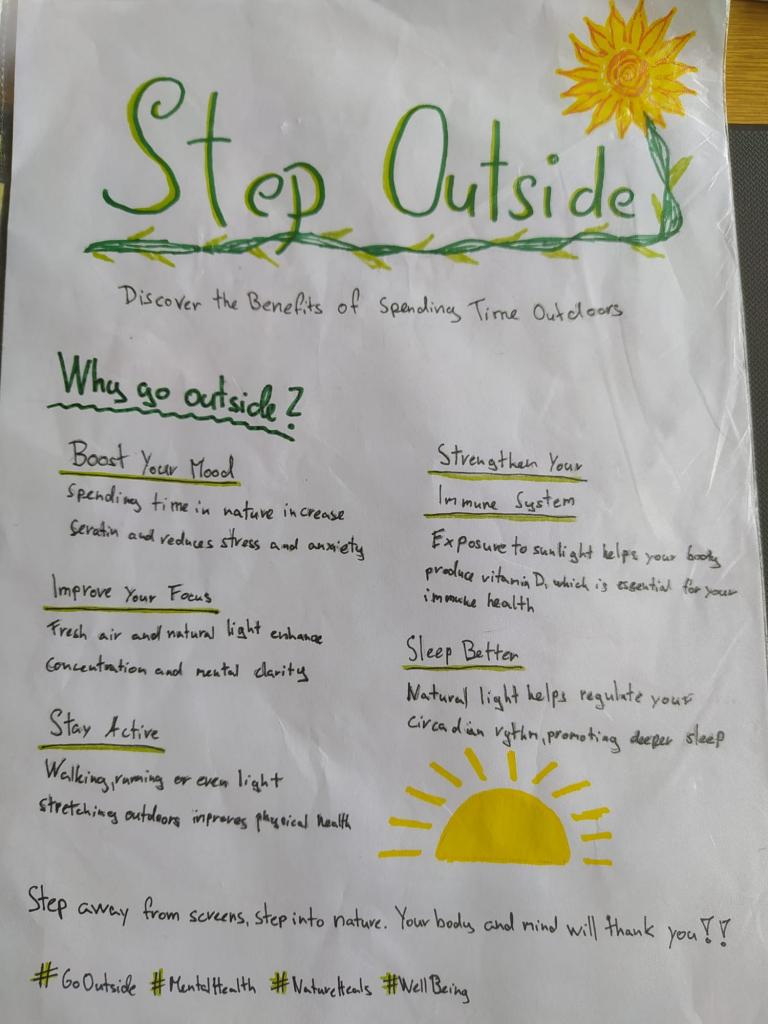 Step Outside
Discover the Benefits of Spending Time Outdoors
Why go outside?
Boost Your Mood
Spending time in nature increase
seratin and reduces stress and anxiety
Improve Your Focus
Fresh air and natural light enhance
concentration and mental clarity
Stay Active
Walking, running or even light
stretching outdoors inproves physical health
Strengthen Your
Immune System
Exposure to sunlight helps your body
produce vitamin D, which is essential for your
immune health
Sleep Better
Natural light helps regulate your
circadian rythm, promoting deeper sleep
Step away from screens, step into nature. Your body and mind will thank you!!
#GoOutside #MentalHealth #NatureHeals #WellBeing